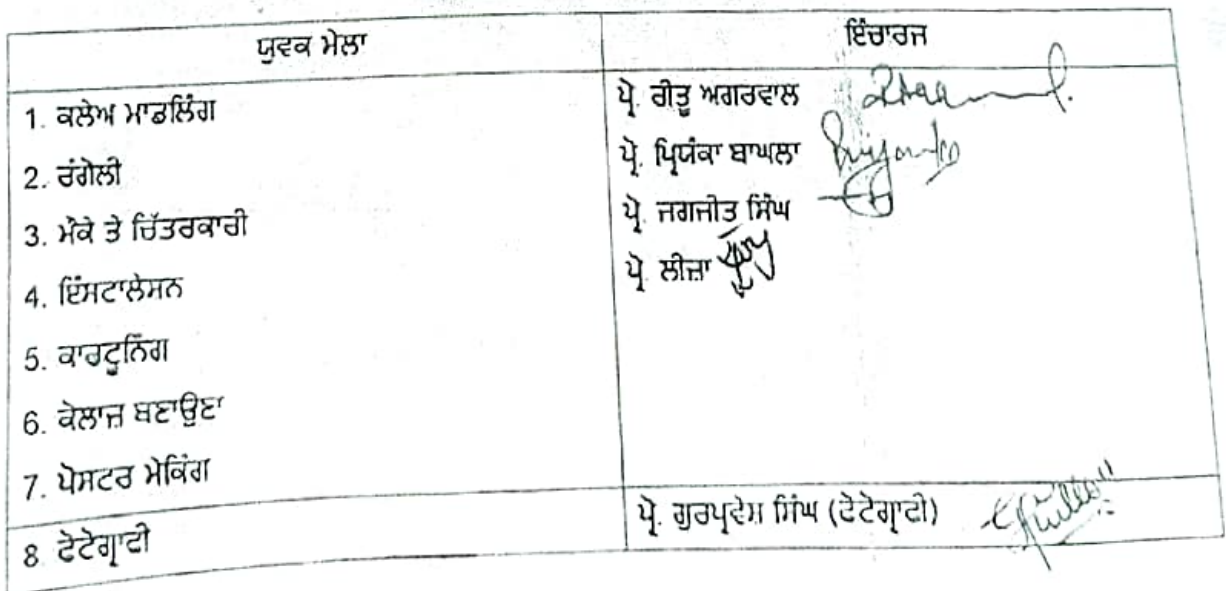 ਯੁਵਕ ਮੇਲਾ
ਇੰਚਾਰਜ
1. ਕਲੇਅ ਮਾਡਲਿੰਗ
2. ਰੰਗੋਲੀ
3. ਮੌਕੇ ਤੇ ਚਿੱਤਰਕਾਰੀ
4. ਇੰਸਟਾਲੇਸਨ
5. ਕਾਰਟੂਨਿੰਗ
6. ਕੋਲਾਜ਼ ਬਣਾਉਣਾ
7. ਪੋਸਟਰ ਮੇਕਿੰਗ
ਪ੍ਰੋ. ਰੀਤੂ ਅਗਰਵਾਲ
ਪ੍ਰੋ. ਪ੍ਰਿਯੰਕਾ ਬਾਘਲਾ
ਪ੍ਰੋ. ਜਗਜੀਤ ਸਿੰਘ
ਪ੍ਰੋ. ਲੀਜ਼ਾ
8. ਫੋਟੋਗ੍ਰਾਫੀ
ਪ੍ਰੋ. ਗੁਰਪ੍ਰਵੇਸ਼ ਸਿੰਘ (ਫੋਟੋਗ੍ਰਾਫੀ)